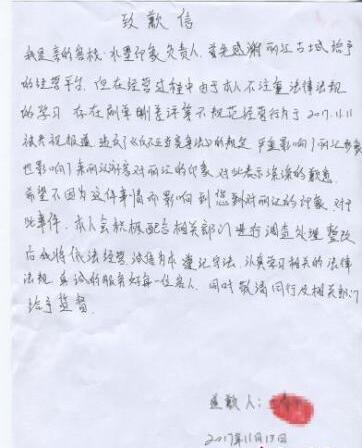 致歉信
我是亲的客栈·水墨印象负责人，首先感谢丽江古城给予
的经营平台，但在经营过程中由于本人不注重法律法规
的学习 存在刷单删差评等不规范经营行为于2017.11.11
被央视报道 违反了《反不正当竞争法》的规定 严重影响了丽江形象
也影响了来丽江游客对丽江的印象 对此表示深深的歉意
希望不因为这件事情而影响到您们对丽江的印象，对于
此事件，本人会积极配合相关部门进行调查处理 整改
后我将依法经营 诚信为本 遵纪守法，认真学习相关的法律
法规 真诚的服务好每一位客人，同时敬请同行及相关部门
给予监督.
致歉人：
2017年11月13日